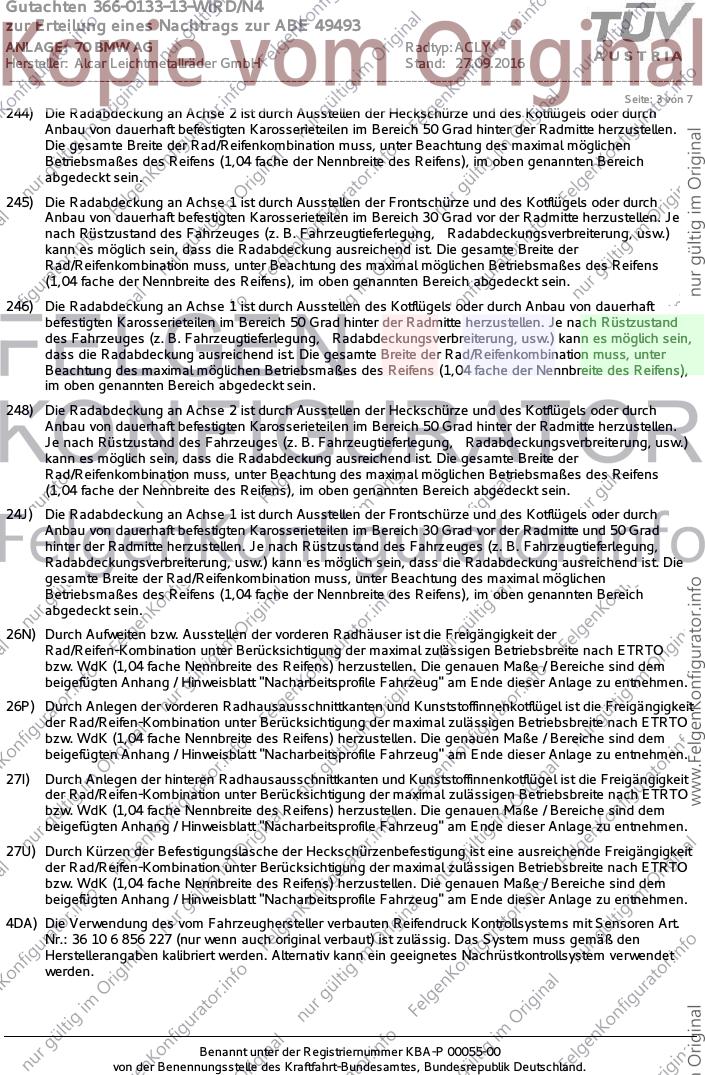 Gutachten 366-0133-13-WIRD/N4
zur Erteilung eines Nachtrags zur ABE 49493
ANLAGE: 70 BMW AG
Hersteller: Alcar Leichtmetallräder GmbH
Radtyp: ACLY
Stand: 27.09.2016
TÜV
AUSTRIA
Kopie vom Original
Seite: 3 von 7
244) Die Radabdeckung an Achse 2 ist durch Ausstellen der Heckschürze und des Kotflügels oder durch
Anbau von dauerhaft befestigten Karosserieteilen im Bereich 50 Grad hinter der Radmitte herzustellen.
Die gesamte Breite der Rad/Reifenkombination muss, unter Beachtung des maximal möglichen
Betriebsmaßes des Reifens (1,04 fache der Nennbreite des Reifens), im oben genannten Bereich
abgedeckt sein.
245) Die Radabdeckung an Achse 1 ist durch Ausstellen der Frontschürze und des Kotflügels oder durch
Anbau von dauerhaft befestigten Karosserieteilen im Bereich 30 Grad vor der Radmitte herzustellen. Je
nach Rüstzustand des Fahrzeuges (z. B. Fahrzeugtieferlegung, Radabdeckungsverbreiterung, usw.)
kann es möglich sein, dass die Radabdeckung ausreichend ist. Die gesamte Breite der
Rad/Reifenkombination muss, unter Beachtung des maximal möglichen Betriebsmaßes des Reifens
(1,04 fache der Nennbreite des Reifens), im oben genannten Bereich abgedeckt sein.
246) Die Radabdeckung an Achse 1 ist durch Ausstellen des Kotflügels oder durch Anbau von dauerhaft
befestigten Karosserieteilen im Bereich 50 Grad hinter der Radmitte herzustellen. Je nach Rüstzustand
des Fahrzeuges (z. B. Fahrzeugtieferlegung, Radabdeckungsverbreiterung, usw.) kann es möglich sein,
dass die Radabdeckung ausreichend ist. Die gesamte Breite der Rad/Reifenkombination muss, unter
Beachtung des maximal möglichen Betriebsmaßes des Reifens (1,04 fache der Nennbreite des Reifens),
im oben genannten Bereich abgedeckt sein.
248) Die Radabdeckung an Achse 2 ist durch Ausstellen der Heckschürze und des Kotflügels oder durch
Anbau von dauerhaft befestigten Karosserieteilen im Bereich 50 Grad hinter der Radmitte herzustellen.
Je nach Rüstzustand des Fahrzeuges (z. B. Fahrzeugtieferlegung, Radabdeckungsverbreiterung, usw.)
kann es möglich sein, dass die Radabdeckung ausreichend ist. Die gesamte Breite der
Rad/Reifenkombination muss, unter Beachtung des maximal möglichen Betriebsmaßes des Reifens
(1,04 fache der Nennbreite des Reifens), im oben genannten Bereich abgedeckt sein.
24J) Die Radabdeckung an Achse 1 ist durch Ausstellen der Frontschürze und des Kotflügels oder durch
Anbau von dauerhaft befestigten Karosserieteilen im Bereich 30 Grad vor der Radmitte und 50 Grad
hinter der Radmitte herzustellen. Je nach Rüstzustand des Fahrzeuges (z. B. Fahrzeugtieferlegung,
Radabdeckungsverbreiterung, usw.) kann es möglich sein, dass die Radabdeckung ausreichend ist. Die
gesamte Breite der Rad/Reifenkombination muss, unter Beachtung des maximal möglichen
Betriebsmaßes des Reifens (1,04 fache der Nennbreite des Reifens), im oben genannten Bereich
abgedeckt sein.
26N) Durch Aufweiten bzw. Ausstellen der vorderen Radhäuser ist die Freigängigkeit der
Rad/Reifen-Kombination unter Berücksichtigung der maximal zulässigen Betriebsbreite nach ETRTO
bzw. WdK (1,04 fache Nennbreite des Reifens) herzustellen. Die genauen Maße / Bereiche sind dem
beigefügten Anhang / Hinweisblatt "Nacharbeitsprofile Fahrzeug" am Ende dieser Anlage zu entnehmen.
26P) Durch Anlegen der vorderen Radhausausschnittkanten und Kunststoffinnenkotflügel ist die Freigängigkeit
der Rad/Reifen-Kombination unter Berücksichtigung der maximal zulässigen Betriebsbreite nach ETRTO
bzw. WdK (1,04 fache Nennbreite des Reifens) herzustellen. Die genauen Maße / Bereiche sind dem
beigefügten Anhang / Hinweisblatt "Nacharbeitsprofile Fahrzeug" am Ende dieser Anlage zu entnehmen.
27I) Durch Anlegen der hinteren Radhausausschnittkanten und Kunststoffinnenkotflügel ist die Freigängigkeit
der Rad/Reifen-Kombination unter Berücksichtigung der maximal zulässigen Betriebsbreite nach ETRTO
bzw. WdK (1,04 fache Nennbreite des Reifens) herzustellen. Die genauen Maße / Bereiche sind dem
beigefügten Anhang / Hinweisblatt "Nacharbeitsprofile Fahrzeug" am Ende dieser Anlage zu entnehmen.
27U) Durch Kürzen der Befestigungslasche der Heckschürzenbefestigung ist eine ausreichende Freigängigkeit
der Rad/Reifen-Kombination unter Berücksichtigung der maximal zulässigen Betriebsbreite nach ETRTO
bzw. WdK (1,04 fache Nennbreite des Reifens) herzustellen. Die genauen Maße / Bereiche sind dem
beigefügten Anhang / Hinweisblatt "Nacharbeitsprofile Fahrzeug" am Ende dieser Anlage zu entnehmen.
4DA) Die Verwendung des vom Fahrzeughersteller verbauten Reifendruck Kontrollsystems mit Sensoren Art.
Nr.: 36 10 6 856 227 (nur wenn auch original verbaut) ist zulässig. Das System muss gemäß den
Herstellerangaben kalibriert werden. Alternativ kann ein geeignetes Nachrüstkontrollsystem verwendet
werden.
Benannt unter der Registriernummer KBA-P 00055-00
von der Benennungsstelle des Kraftfahrt-Bundesamtes, Bundesrepublik Deutschland.
FELGEN
KONFIGURATOR
FelgenKonfigurator.info
nur gültig im Original
www.FelgenKonfigurator.info